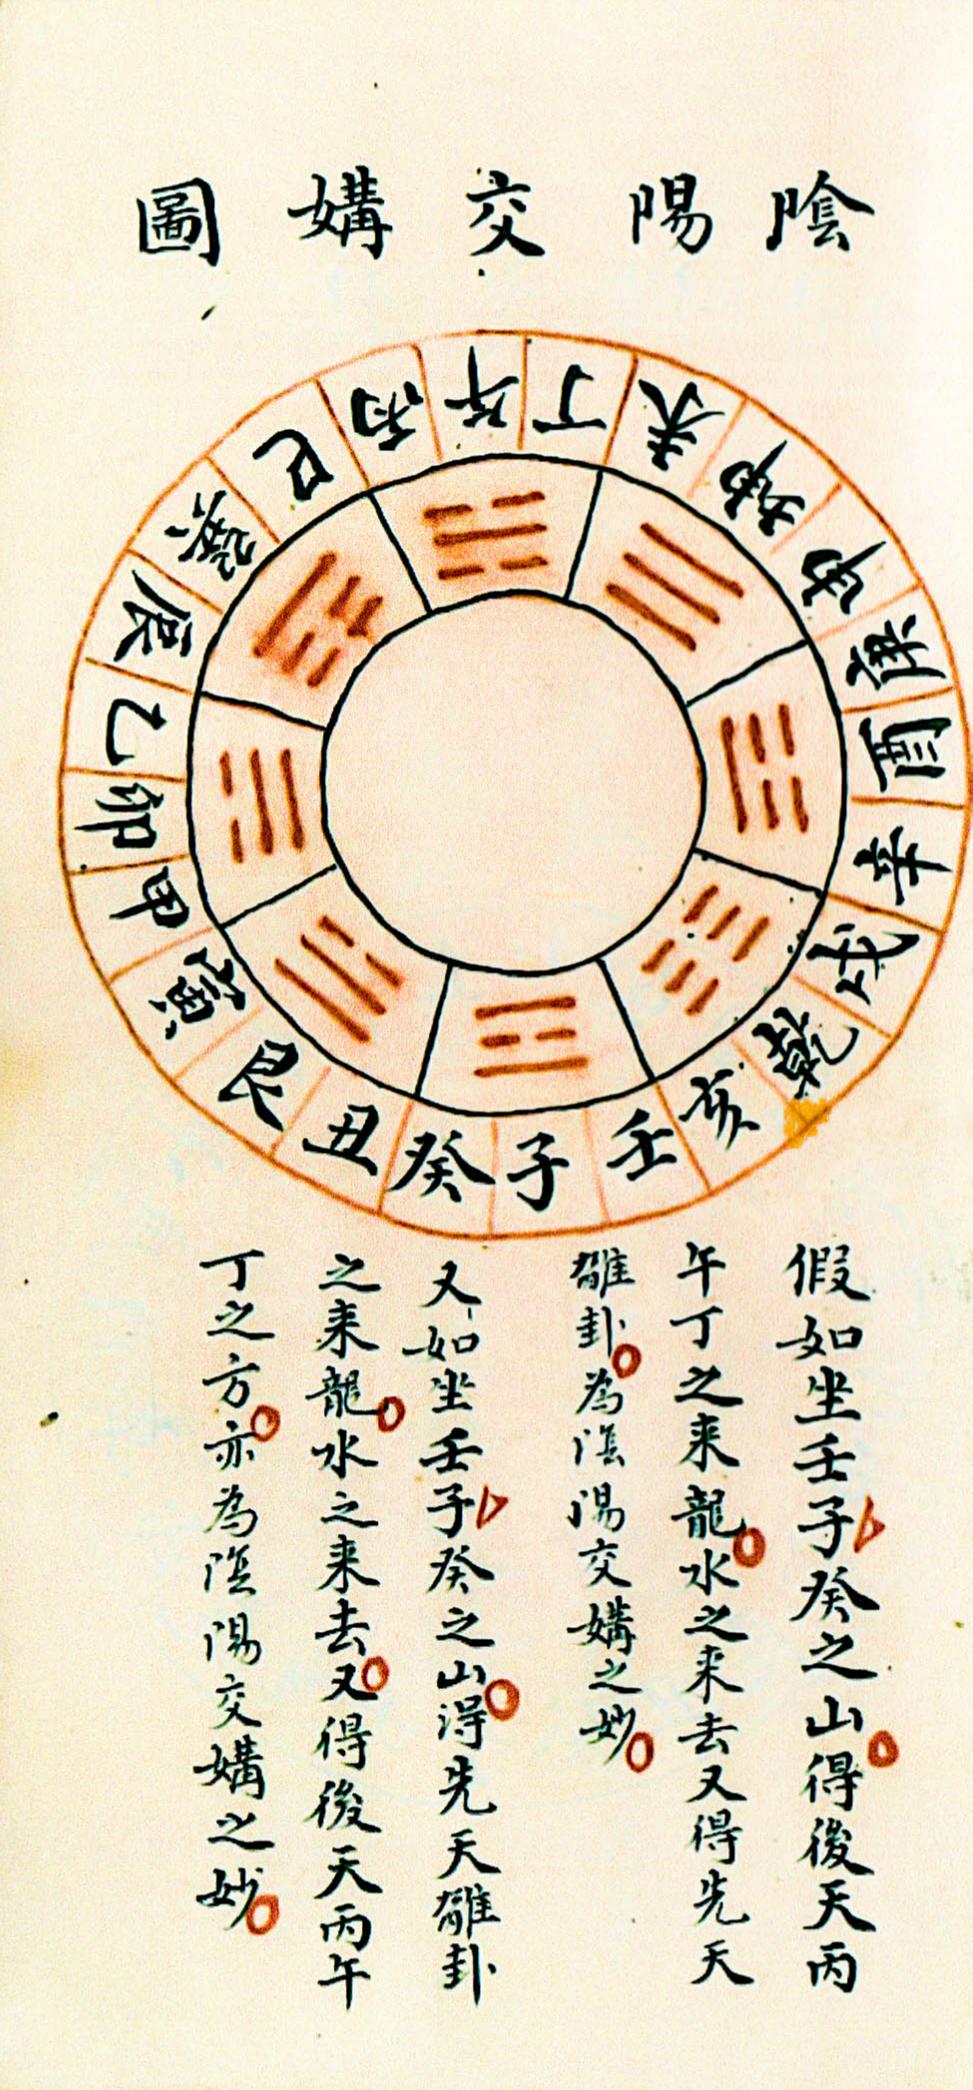 陰陽交媾圖
午丁未坤申庚酉辛戌乾亥壬子癸丑艮寅甲卯乙辰巽巳丙
假如坐壬子癸之山得後天丙
午丁之来龍水之来去又得先天
離卦為陰陽交媾之妙
又如坐壬子癸之山得先天離卦
之来龍水之来去又得後天丙午
丁之方亦為陰陽交媾之妙